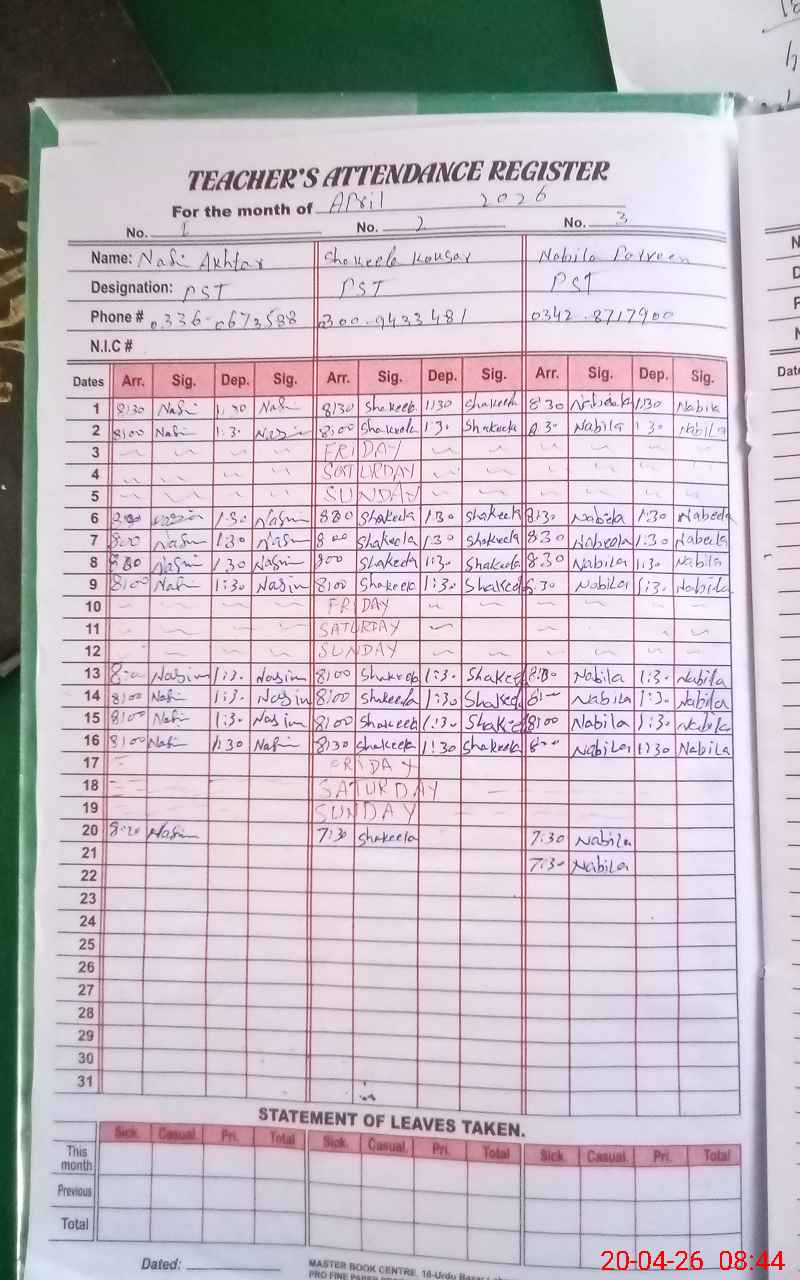 TEACHER'S ATTENDANCE REGISTER
For the month of April 2026
No. 1 No. 2 No. 3
Name: Nasi Akhtar Shakeela Kousar Nabila Parveen
Designation: PST PST PST
Phone # 0336-0673588 0300-9433481 0342-8717900
N.I.C #
Dates Arr. Sig. Dep. Sig. Arr. Sig. Dep. Sig. Arr. Sig. Dep. Sig.
1 8:30 Nasi 1:30 Nasi 8:30 Shakeela 1:30 Shakeela 8:30 Nabeela 1:30 Nabila
2 8:00 Nasi 1:3. Nasim 8:00 Shakeela 1:3. Shakeela 8.30 Nabila 1:30 Nabila
3 FRIDAY
4 SATURDAY
5 SUNDAY
6 Nasim 1:30 Nasim 800 Shakeela 1:30 Shakeela 8:30 Nabeela 1:30 Nabeela
7 800 Nasim 1:30 Nasim 800 Shakeela 1:30 Shakeela 8.30 Nabeela 1:30 Nabeela
8 800 Nasim 1:30 Nasim 800 Shakeela 1:30 Shakeela 8.30 Nabila 1:30 Nabila
9 8:00 Nasi 1:30 Nasim 8:00 Shakeela 1:30 Shakeela 8.30 Nabila 1:30 Nabila
10 FRIDAY
11 SATURDAY
12 SUNDAY
13 Nasim 1:3. Nasim 8:00 Shakeela 1:3. Shakeela 8:00 Nabila 1:3. Nabila
14 8:00 Nasi 1:3. Nasim 8:00 Shakeela 1:30 Shakeela Nabila 1:3. Nabila
15 8:00 Nasi 1:3. Nasim 8:00 Shakeela 1:3. Shakeela 8:00 Nabila 1:3. Nabila
16 8:00 Nasi 1:30 Nasi 8:30 Shakeela 1:30 Shakeela Nabila 1:30 Nabila
17 FRIDAY
18 SATURDAY
19 SUNDAY
20 8:20 Nasim 7:30 Shakeela 7:30 Nabila
21 7:30 Nabila
22
23
24
25
26
27
28
29
30
31
STATEMENT OF LEAVES TAKEN.
Sick. Casual. Pri. Total Sick. Casual. Pri. Total Sick. Casual. Pri. Total
This month
Previous
Total
Dated:
MASTER BOOK CENTRE, 16-Urdu Bazar
PRO FINE PAPER
20-04-26 08:44